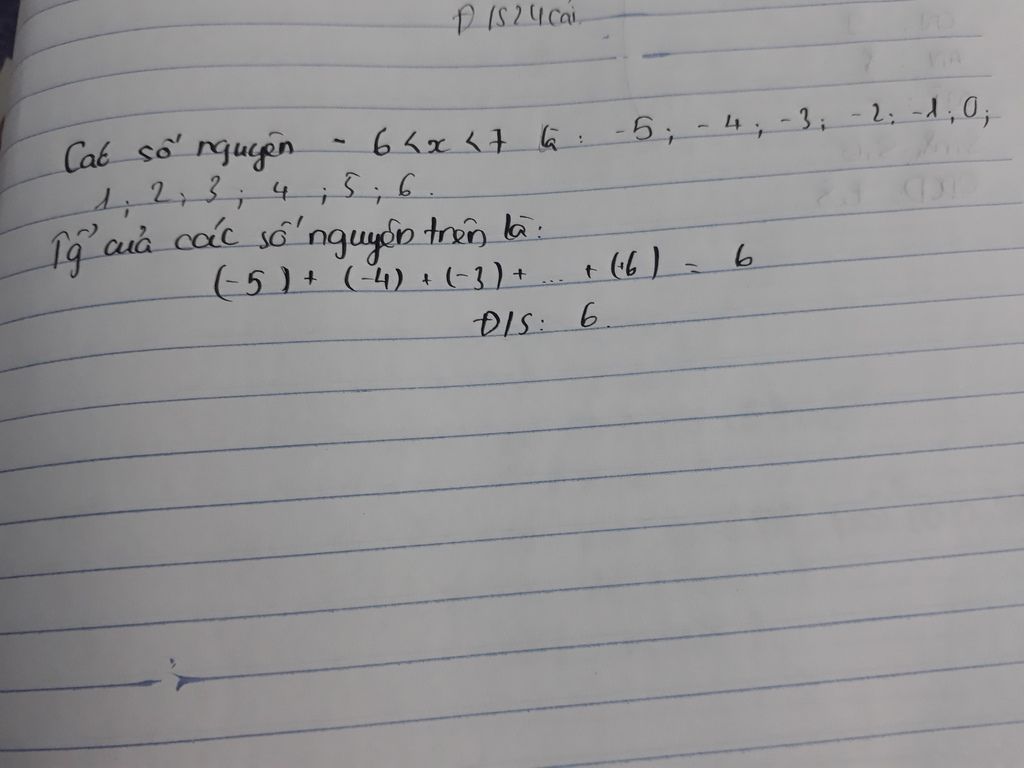 Đ/S 24 cái.
Các số nguyên - 6 < x < 7 là : -5 ; - 4 ; -3 ; -2 ; -1 ; 0 ;
1 ; 2 ; 3 ; 4 ; 5 ; 6 .
Tg̉ của các số nguyên trên là :
(-5) + (-4) + (-3) + ... + (+6) = 6
Đ/S : 6.